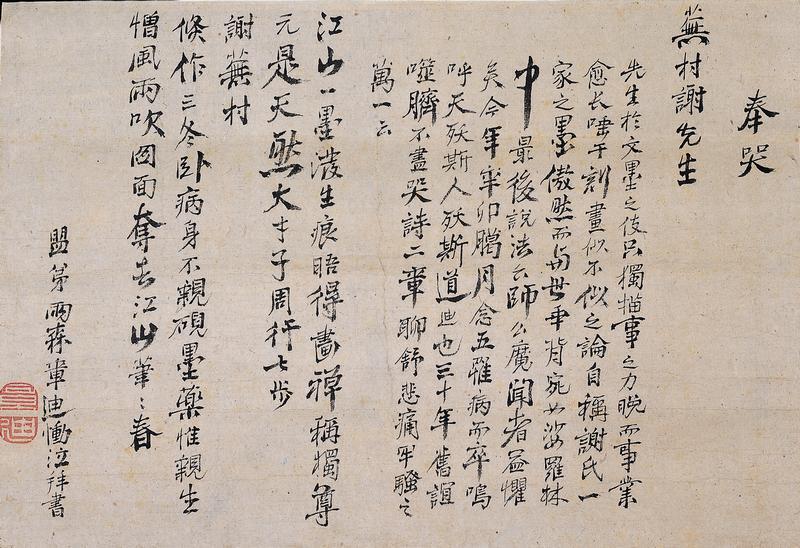 奉哭
蕪村謝先生
先生於文墨之伎只獨描事之力晩而事業
愈長唾于刻畫似不似之論自稱謝氏一
家之墨傲然而与世乖背宛如娑羅林
中最後說法云師公魔聞者益懼
矣今年辛卯臘月念五罹病而卒嗚
呼天殀斯人殀斯道也三十年舊誼
噬臍不盡哭詩二章聊舒悲痛牢騷之
萬一云
江山一墨潑生痕晤得畫禅稱獨尊
元是天然大才子周行七步
謝蕪村
倏作三冬卧病身不親硯墨藥惟親生
憎風雨吹圖面奪去江山筆〻春
盟弟雨森章迪慟泣拝書